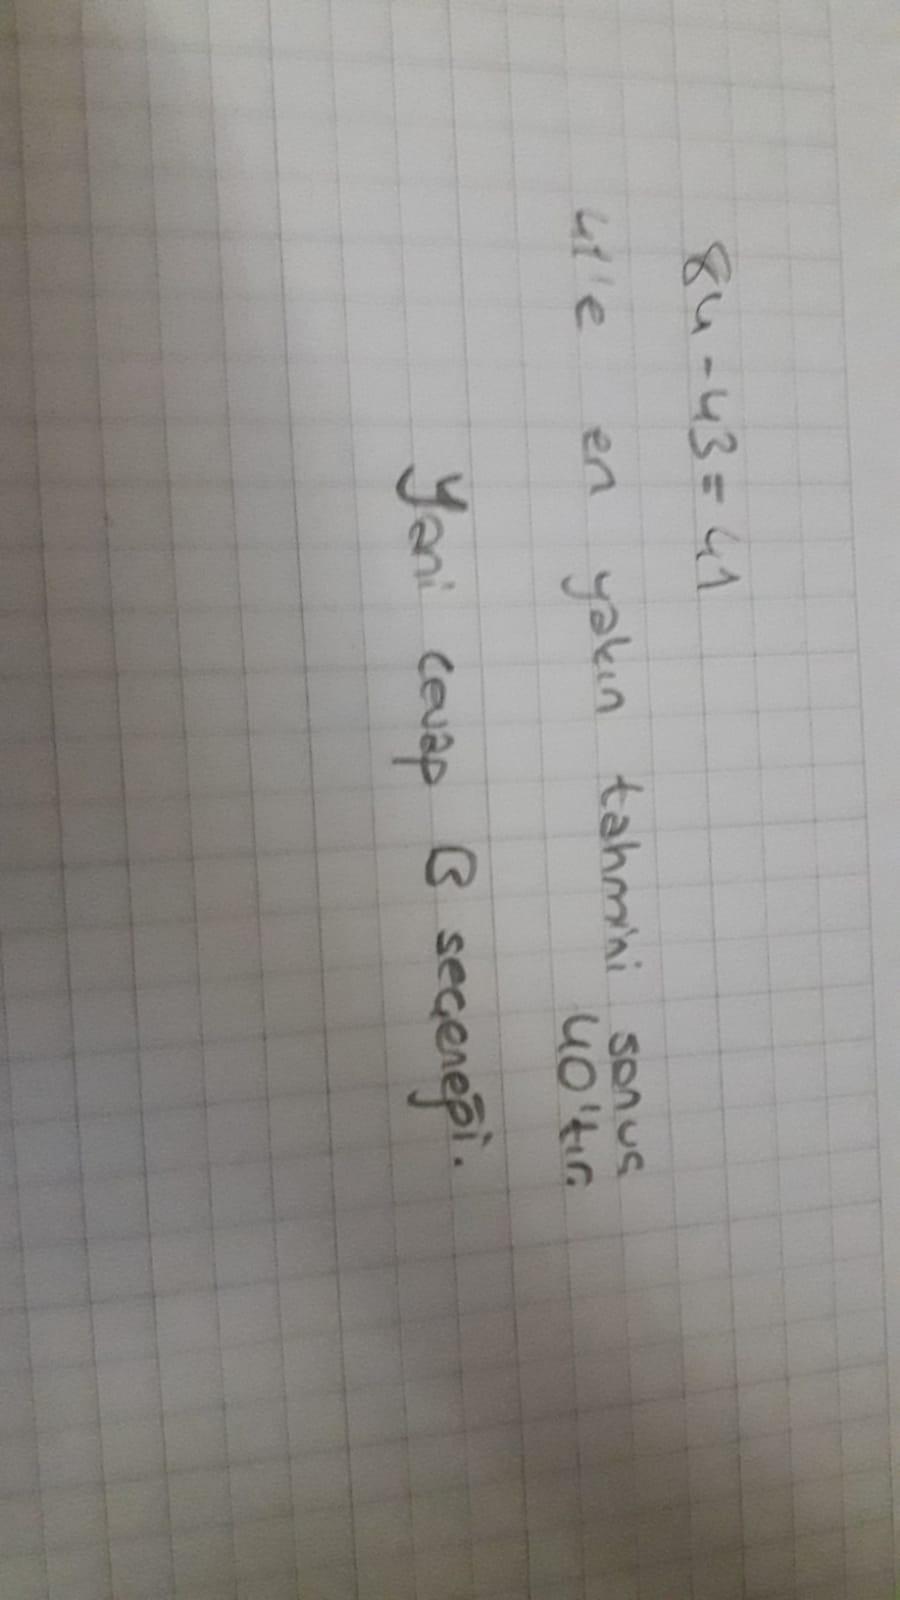 84-43=41
41'e en yakın tahmini sonuç
40'tır.
Yani cevap B seçeneği.